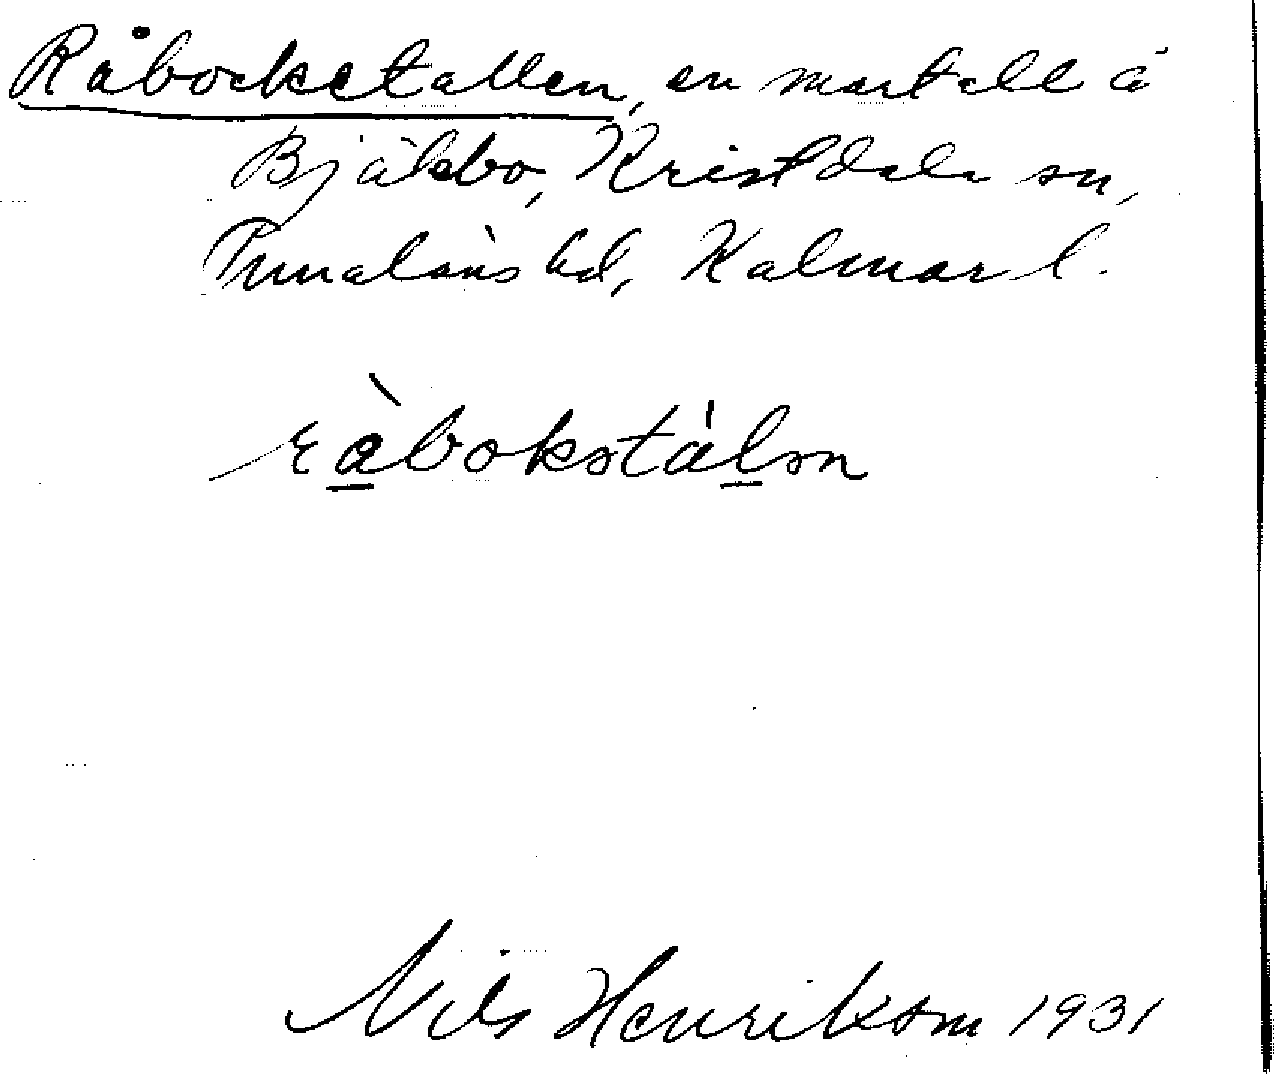 Råbocketallen, en martall å
Bjälebo, Kristdala sn,
Tunaläns hd, Kalmar l.
råbokstalən
Nils Henrikson 1931